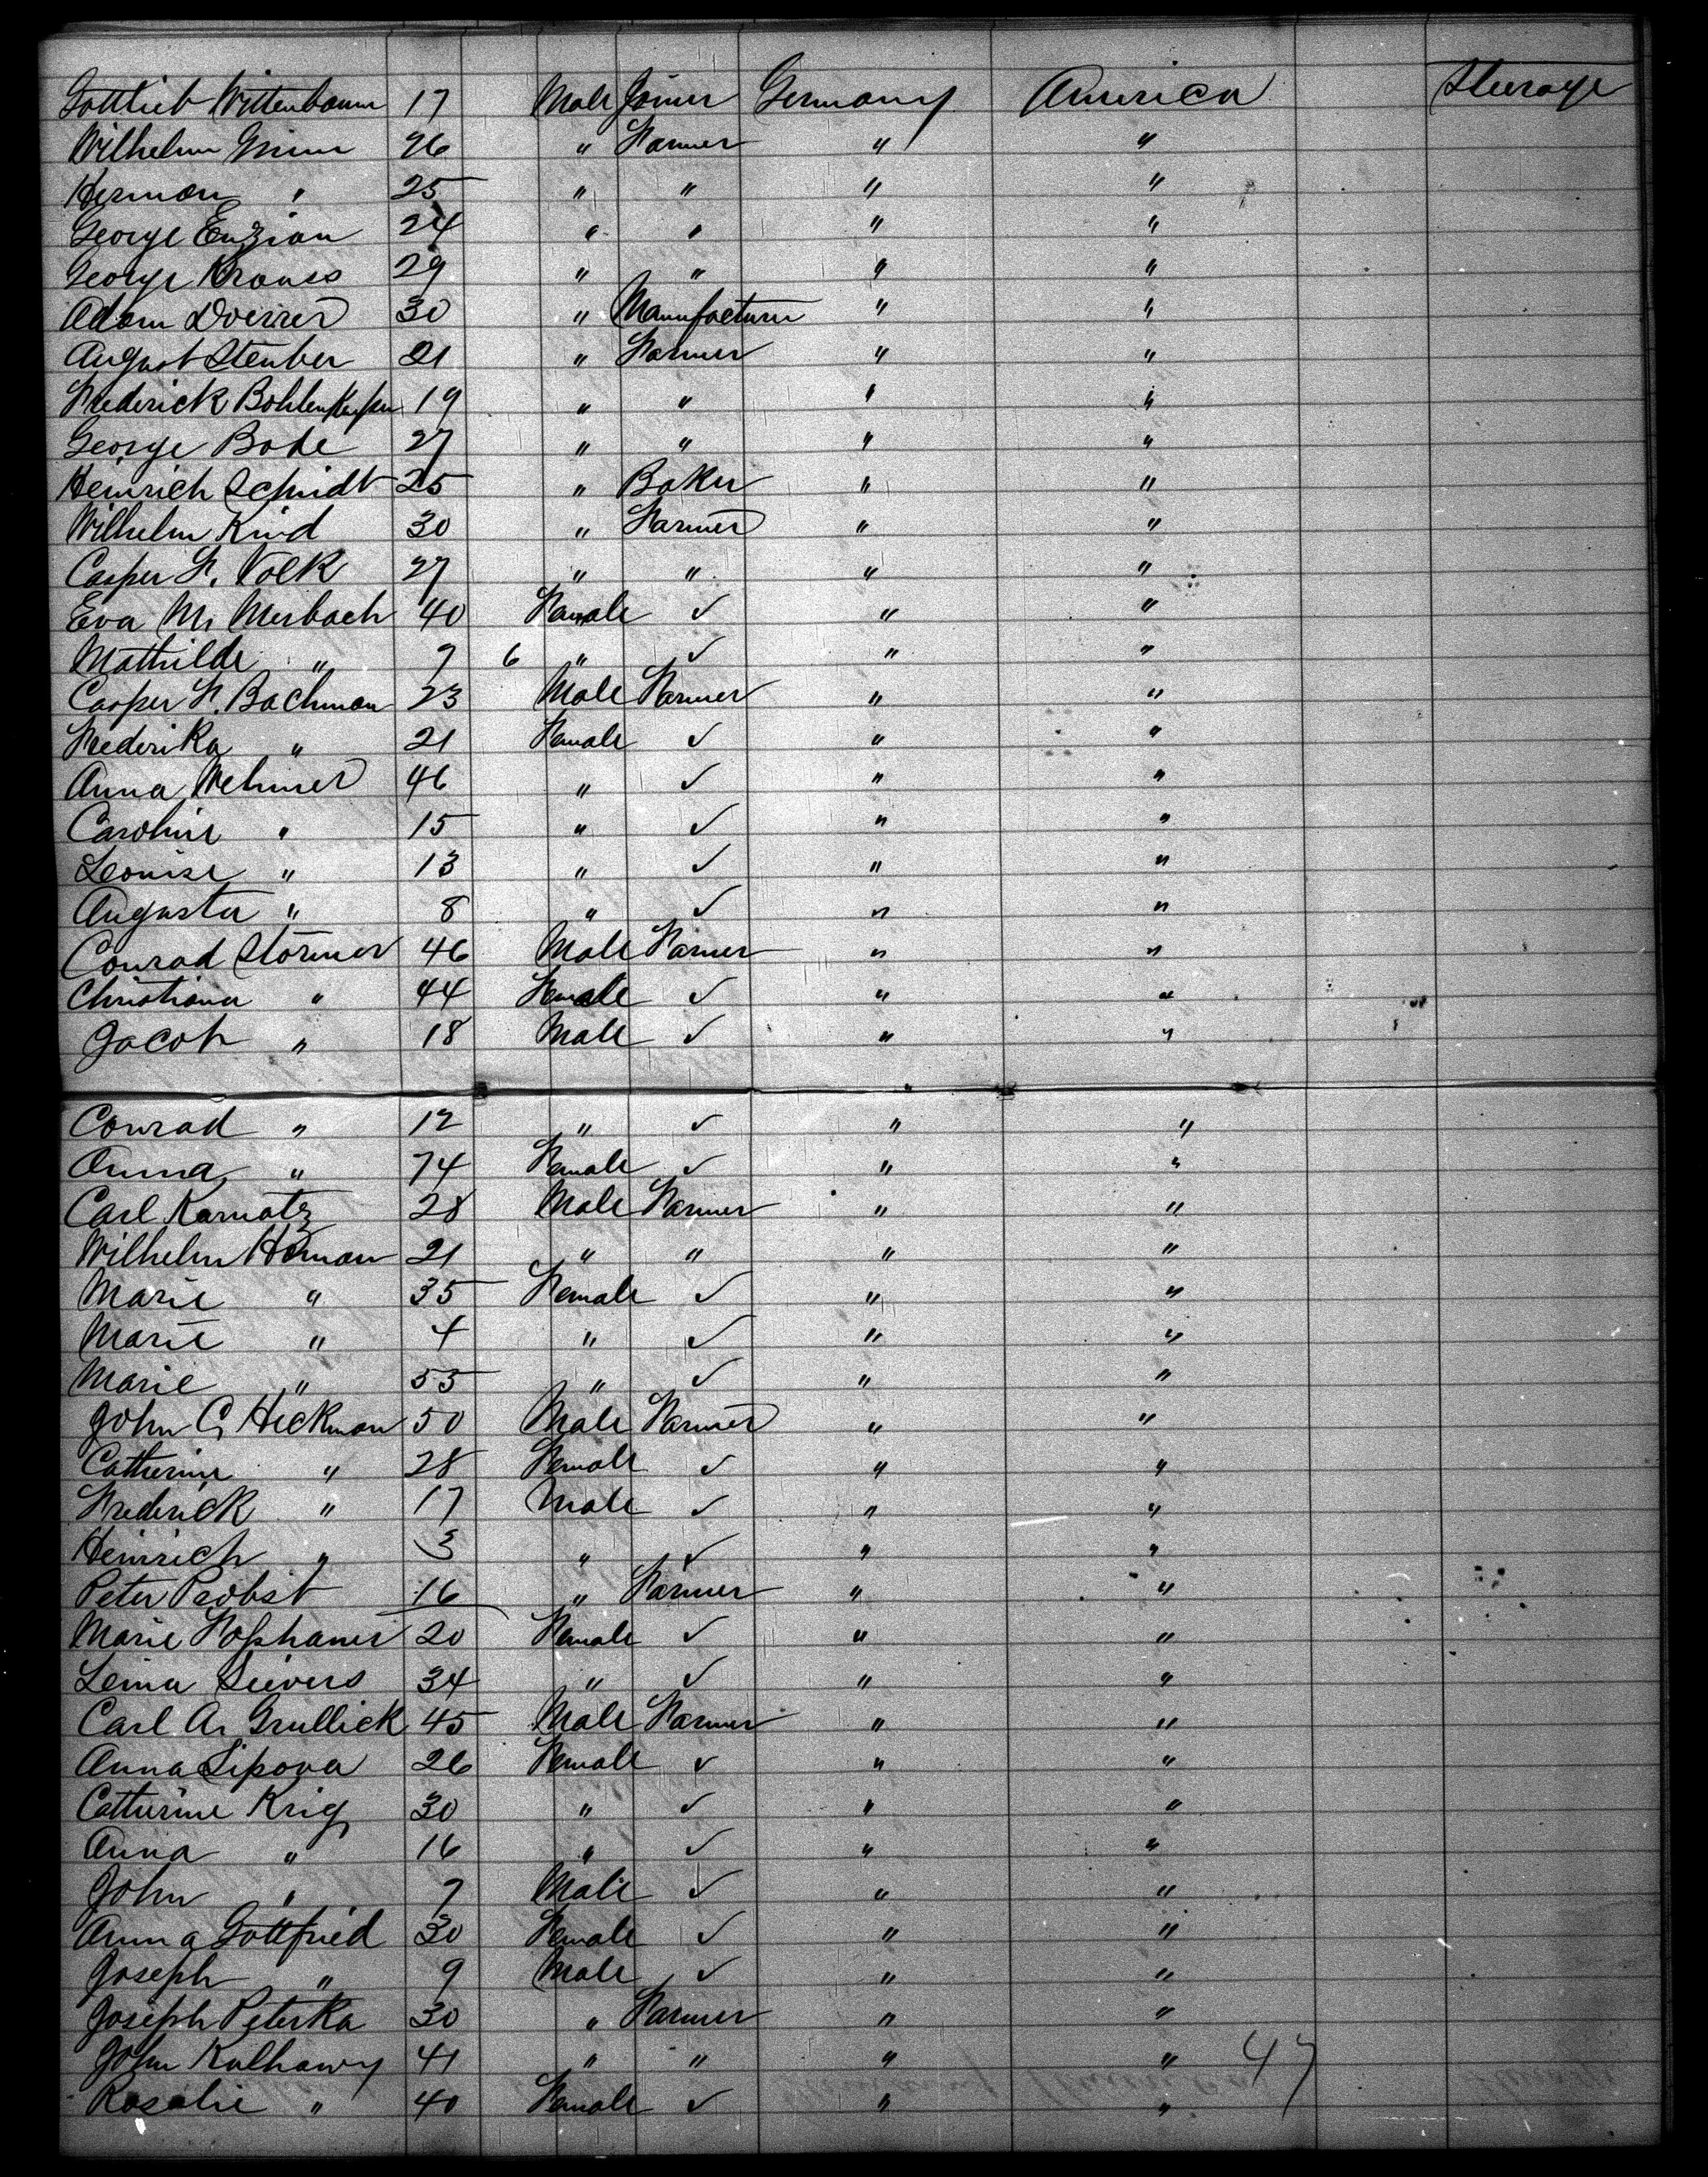 Gottlieb Wittenbaum 17 Male Joiner Germany America Steerage
Wilhelm Grimm 26 " Farmer " "
Herman " 25 " " " "
George Enzian 24 " " " "
George Krauss 29 " " " "
Adam Doerrer 30 " Manufacturer " "
August Steuber 21 " Farmer " "
Frederick Bohlenkamper 19 " " " "
George Bode 27 " " " "
Heinrich Schmidt 25 " Baker " "
Wilhelm Kind 30 " Farmer " "
Casper F. Volk 27 " " " "
Eva M. Merbach 40 Female ✓ " "
Mathilde " 9 6 " ✓ " "
Casper F. Bachman 23 Male Farmer " "
Frederika " 21 Female ✓ " "
Anna Wehmer 46 " ✓ " "
Caroline " 15 " ✓ " "
Leouise " 13 " ✓ " "
Augusta " 8 " ✓ " "
Conrad Störmer 46 Male Farmer " "
Christiana " 44 Female ✓ " "
Jacob " 18 Male ✓ " "
Conrad " 12 " ✓ " "
Anna " 74 Female ✓ " "
Carl Karnatz 28 Male Farmer " "
Wilhelm Homan 21 " " " "
Marie " 35 Female ✓ " "
Marie " 4 " ✓ " "
Marie " 55 " ✓ " "
John C. Heckman 50 Male Farmer " "
Catherine " 28 Female ✓ " "
Frederick " 17 Male ✓ " "
Heinrich " 3 " ✓ " "
Peter Probst 16 " Farmer " "
Marie 20 Female ✓ " "
Leina Sievers 34 " ✓ " "
Carl A. Grullick 45 Male Farmer " "
Anna Lipova 26 Female ✓ " "
Catherine Krig 30 " ✓ " "
Anna " 16 " ✓ " "
John " 7 Male ✓ " "
Anna Gottfried 30 Female ✓ " "
Joseph " 9 Male ✓ " "
Joseph Peterka 30 " Farmer " "
John Kulhawy 41 " " " " 47
Rosalie " 40 Female ✓ " "